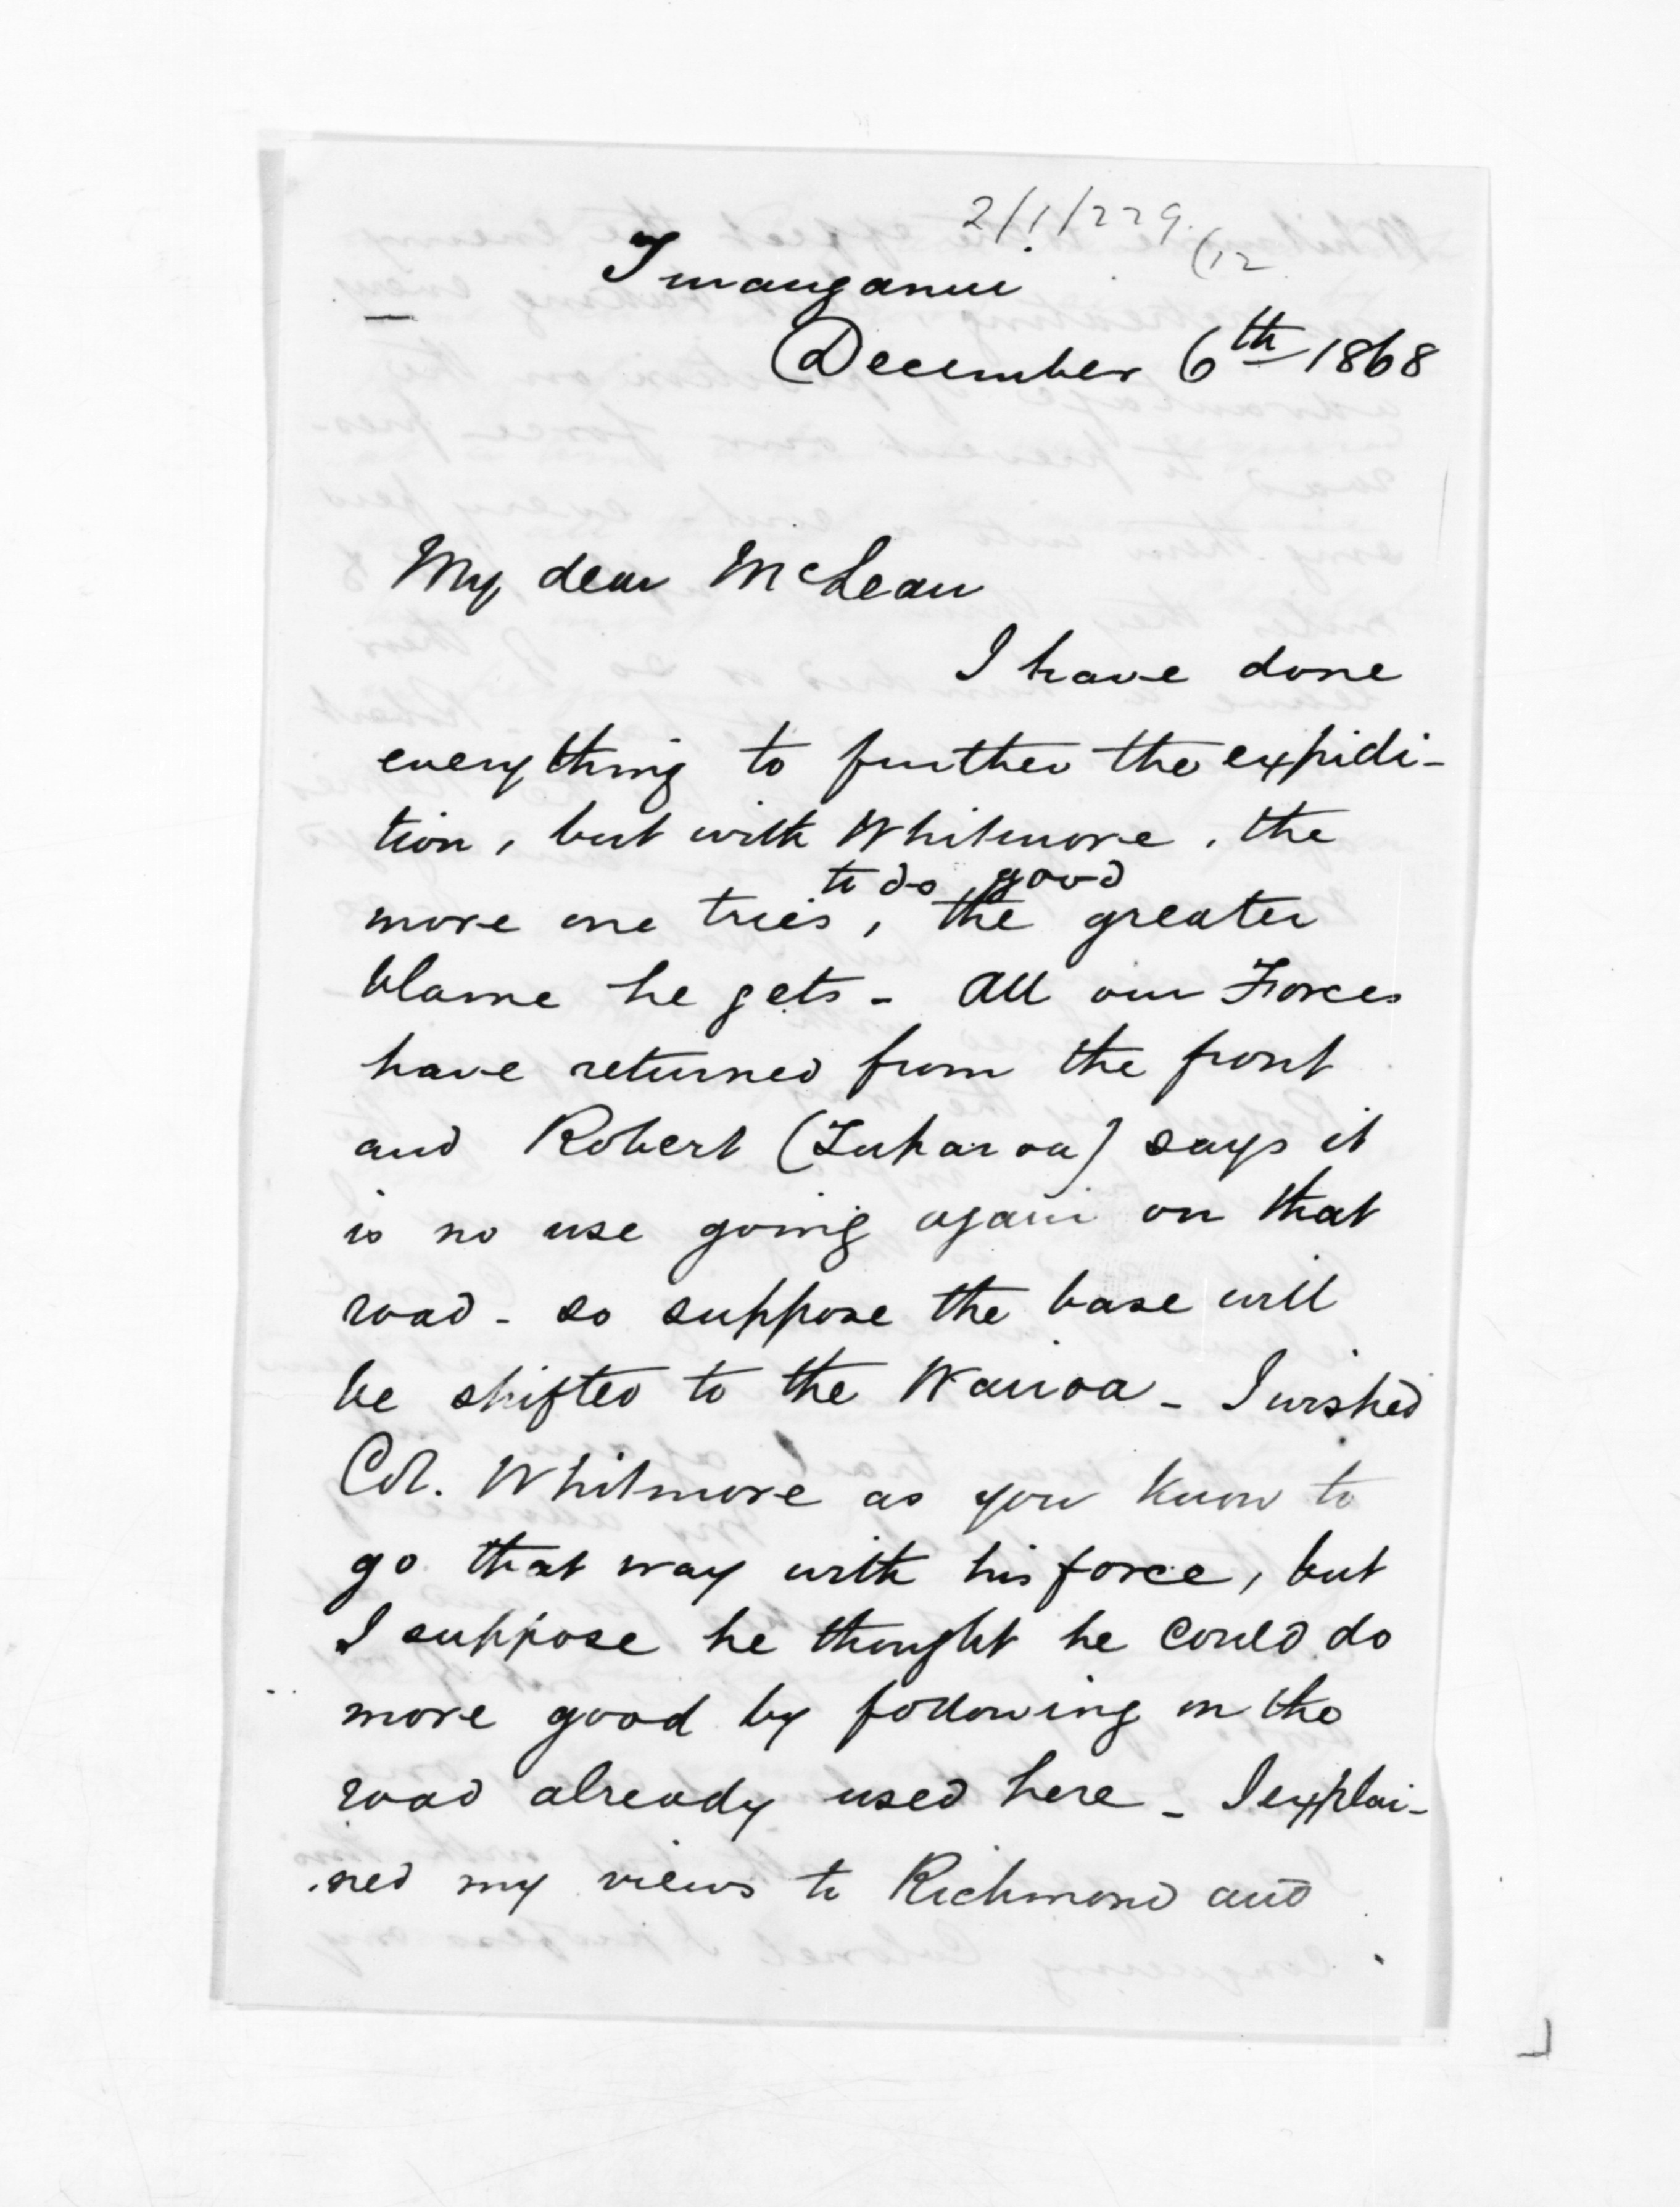 2/1/229.
(12
Turanganui
December 6th 1868
My dear McLean
I have done
everything to further the expidi-
tion, but with Whitmore, the
more one tries, to do good the greater
blame he gets - All our Forces
have returned from the front
and Robert (Tuharoa) says it
is no use going again on that
road - so suppose the base will
be shifted to the Wairoa - I wished
Col. Whitmore as you know to
go that way with his force, but
I suppose he thought he could do
more good by following on the
road already used here - I explai-
ned my views to Richmond and